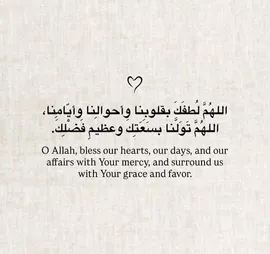 اللهُمَّ لُطفَكَ بقلوبِنا وأحوالِنا وأيّامِنا،
اللهُمَّ تَوَلَّنا بسَعَتِك وعظيمِ فَضْلِك.
O Allah, bless our hearts, our days, and our
affairs with Your mercy, and surround us
with Your grace and favor.